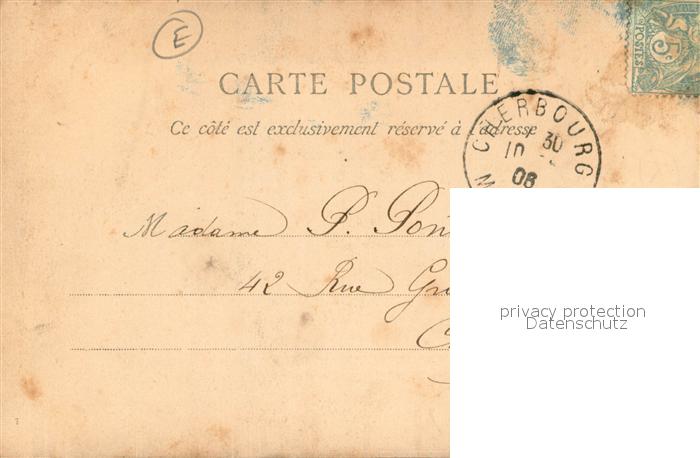 E
5c
POSTES
CARTE POSTALE
Ce côté est exclusivement réservé à l'adresse
CHERBOURG
10 30
08
Madame P.
42 Rue
privacy protection
Datenschutz